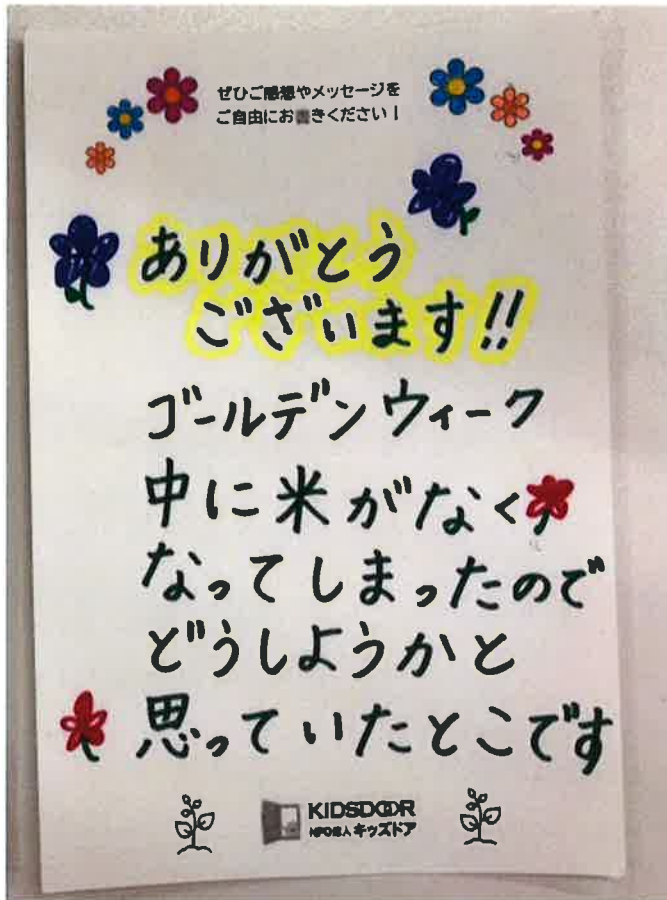 ぜひご感想やメッセージを
ご自由にお書きください！
ありがとう
ございます!!
ゴールデンウィーク
中に米がなく
なってしまったので
どうしようかと
思っていたとこです
KIDSDOOR
NPO法人キッズドア